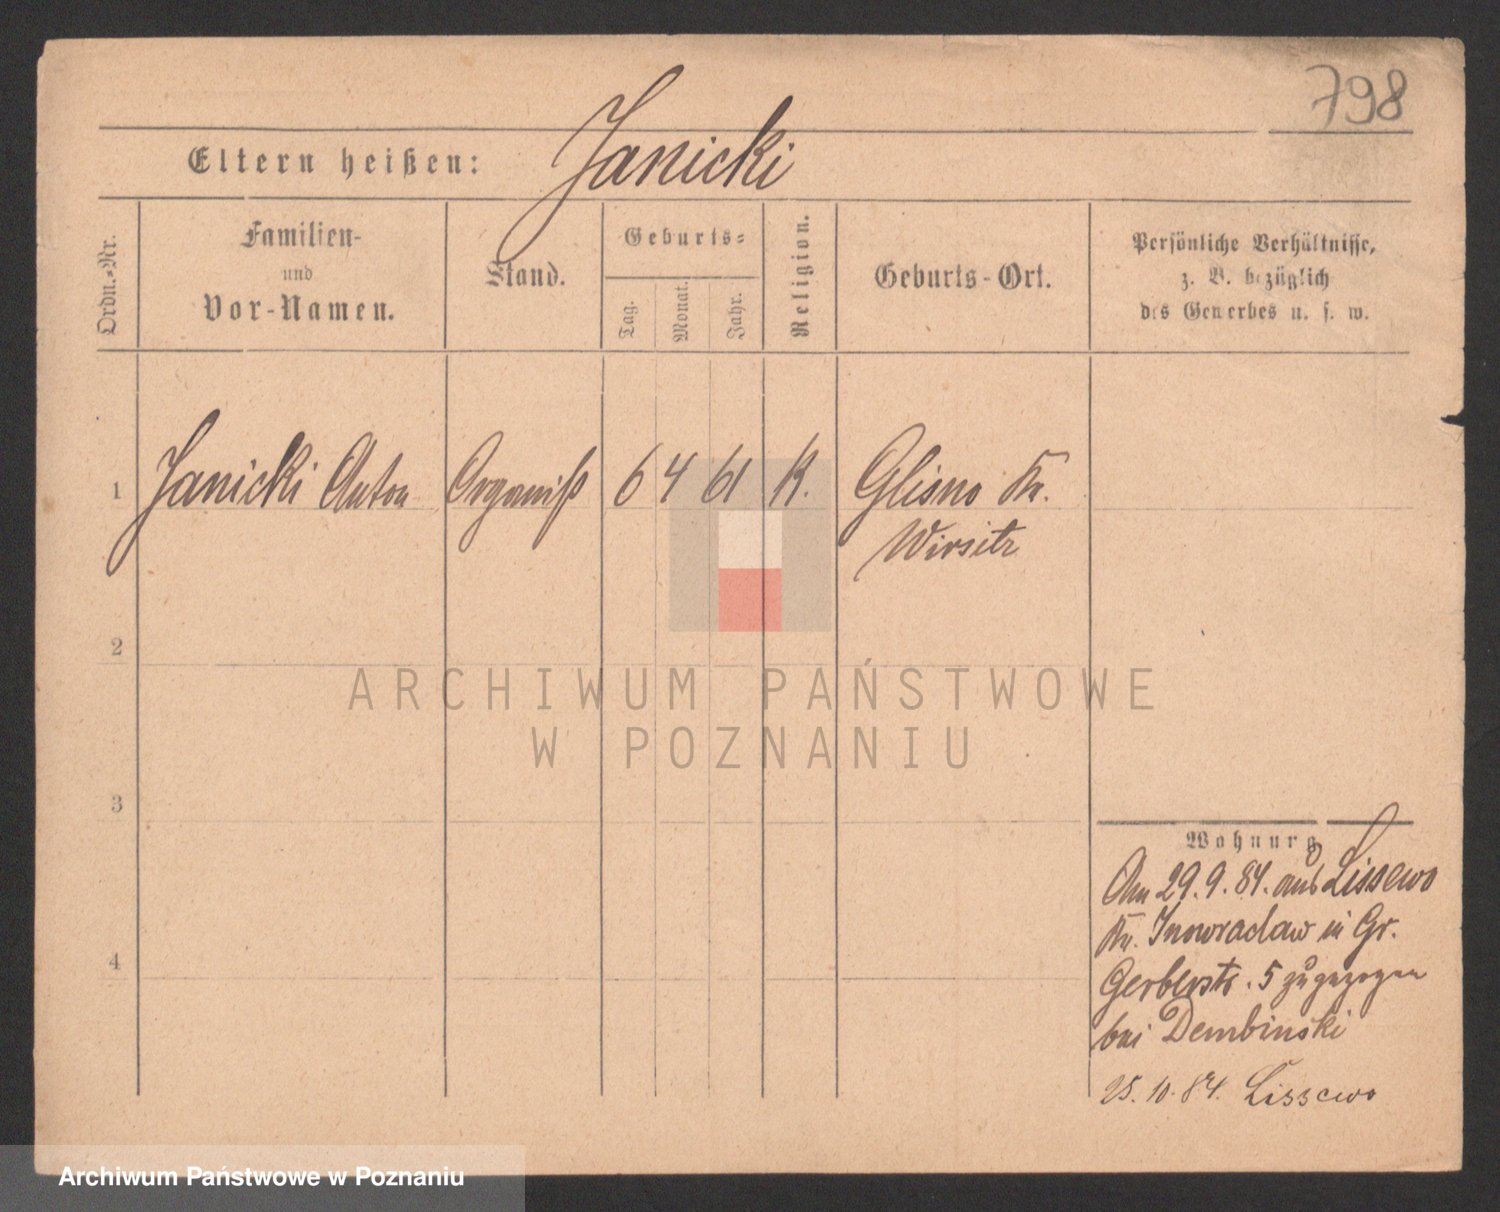 798
Eltern heißen: Janicki
Ordn.-Nr.
Familien-
und
Vor-Namen.
Stand.
Geburts-
Tag.
Monat.
Jahr.
Religion.
Geburts-Ort.
Persönliche Verhältnisse,
z. B. bezüglich
des Gewerbes u. s. w.
1 Janicki Anton Organist 6 4 61 K. Glisno Kr.
Wirsitz
2
ARCHIWUM PAŃSTWOWE
W POZNANIU
3
Wohnung
Am 29.9.84. aus Lissewo
Kr. Inowraclaw in Gr.
Gerberstr. 5 zugezogen
bei Dembinski
4
25.10.84. Lissewo
Archiwum Państwowe w Poznaniu